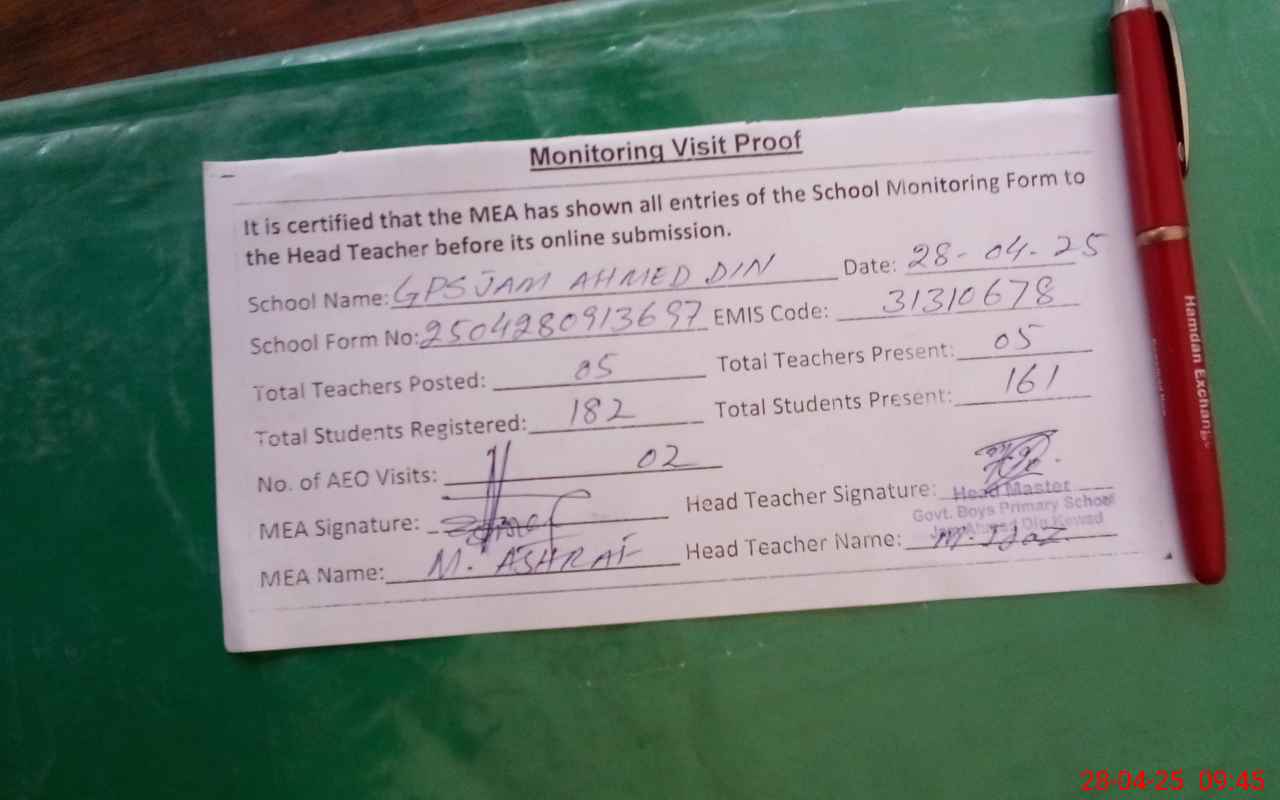 Monitoring Visit Proof
It is certified that the MEA has shown all entries of the School Monitoring Form to
the Head Teacher before its online submission.
School Name: GPS JAM AHMED DIN Date: 28-04-25
School Form No: 2504280913697 EMIS Code: 31310678
Total Teachers Posted: 05 Total Teachers Present: 05
Total Students Registered: 182 Total Students Present: 161
No. of AEO Visits: 02
MEA Signature: Head Teacher Signature:
Head Master
Govt. Boys Primary School
MEA Name: M. ASHRAF Head Teacher Name: M. Ijaz
Hamdan Exchang
28-04-25 09:45